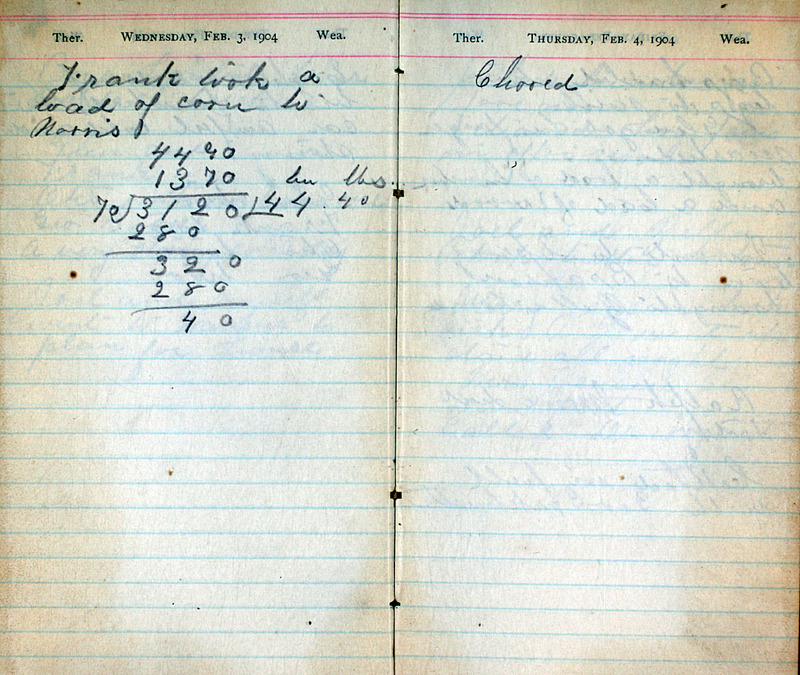 Ther. WEDNESDAY, FEB. 3, 1904 Wea.
Frank took a
load of corn to
Norris
4490
1370 bu lbs.
70)3120(44.40
280
320
280
40
Ther. THURSDAY, FEB. 4, 1904 Wea.
Chored